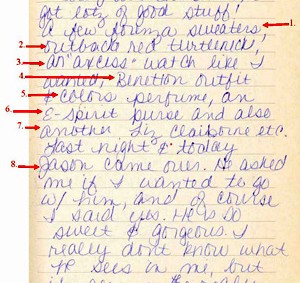 got lotz of good stuff!
A few forma sweaters, 1.
2. outback red turtleneck,
3. an "axcess" watch like I
4. wanted, Benetton outfit
5. & colors perfume, an
6. E-spirit purse and also
7. another, Liz claiborne etc.
Last night & today
8. Jason came over. He asked
me if I wanted to go
w/ him, and of course
I said yes. He is so
sweet & gorgeous. I
really don't know what
He sees in me, but